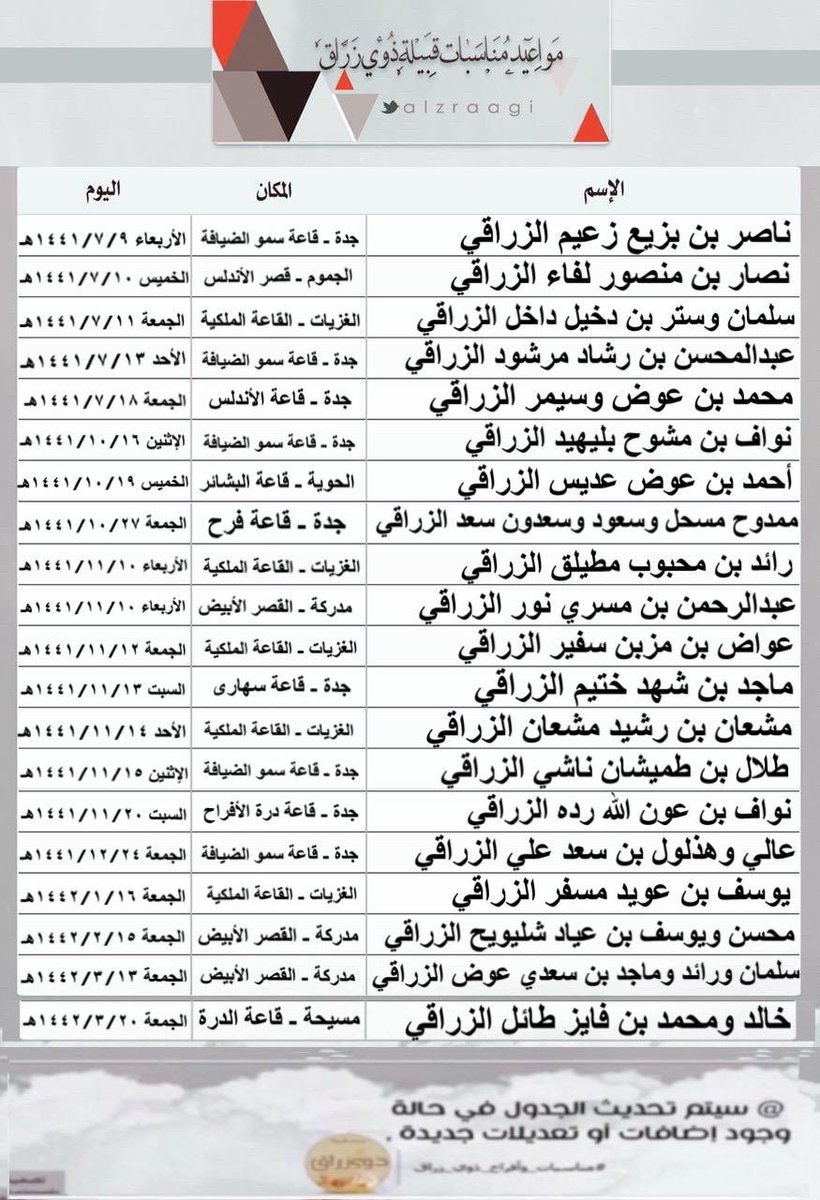 مواعيد مناسبات قبيلة ذوي زراق
alzraagi
الإسم المكان اليوم
ناصر بن بزيع زعيم الزراقي جدة - قاعة سمو الضيافة الأربعاء ١٤٤١/٧/٩هـ
نصار بن منصور لفاء الزراقي الجموم - قصر الأندلس الخميس ١٤٤١/٧/١٠هـ
سلمان وستر بن دخيل داخل الزراقي الغزيات - القاعة الملكية الجمعة ١٤٤١/٧/١١هـ
عبدالمحسن بن رشاد مرشود الزراقي جدة - قاعة سمو الضيافة الأحد ١٤٤١/٧/١٣هـ
محمد بن عوض وسيمر الزراقي جدة - قاعة الأندلس الجمعة ١٤٤١/٧/١٨هـ
نواف بن مشوح بليهيد الزراقي جدة - قاعة سمو الضيافة الإثنين ١٤٤١/١٠/١٦هـ
أحمد بن عوض عديس الزراقي الحوية - قاعة البشائر الخميس ١٤٤١/١٠/١٩هـ
ممدوح مسحل وسعود وسعدون سعد الزراقي جدة - قاعة فرح الجمعة ١٤٤١/١٠/٢٧هـ
رائد بن محبوب مطيلق الزراقي الغزيات - القاعة الملكية الأربعاء ١٤٤١/١١/١٠هـ
عبدالرحمن بن مسري نور الزراقي مدركة - القصر الأبيض الأربعاء ١٤٤١/١١/١٠هـ
عواض بن مزبن سفير الزراقي الغزيات - القاعة الملكية الجمعة ١٤٤١/١١/١٢هـ
ماجد بن شهد ختيم الزراقي جدة - قاعة سهارى السبت ١٤٤١/١١/١٣هـ
مشعان بن رشيد مشعان الزراقي الغزيات - القاعة الملكية الأحد ١٤٤١/١١/١٤هـ
طلال بن طميشان ناشي الزراقي جدة - قاعة سمو الضيافة الإثنين ١٤٤١/١١/١٥هـ
نواف بن عون الله رده الزراقي جدة - قاعة درة الأفراح السبت ١٤٤١/١١/٢٠هـ
عالي وهذلول بن سعد علي الزراقي جدة - قاعة سمو الضيافة الجمعة ١٤٤١/١٢/٢٤هـ
يوسف بن عويد مسفر الزراقي الغزيات - القاعة الملكية الجمعة ١٤٤٢/١/١٦هـ
محسن ويوسف بن عياد شليويح الزراقي مدركة - القصر الأبيض الجمعة ١٤٤٢/٢/١٥هـ
سلمان ورائد وماجد بن سعدي عوض الزراقي مدركة - القصر الأبيض الجمعة ١٤٤٢/٣/١٣هـ
خالد ومحمد بن فايز طائل الزراقي مسيحة - قاعة الدرة الجمعة ١٤٤٢/٣/٢٠هـ
@ سيتم تحديث الجدول في حالة
وجود إضافات أو تعديلات جديدة .
#مناسبات_وأفراح_ذوي_زراق
ذوي زراق